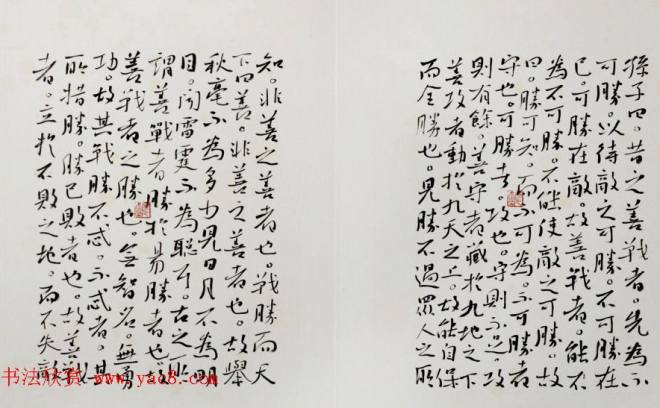 孫子曰。昔之善戰者。先為不
可勝。以待敵之可勝。不可勝在
己。可勝在敵。故善戰者。能
為不可勝。不能使敵之可勝。故
曰。勝可知。而不可為。不可勝者
守也。可勝者。攻也。守則不足攻
則有餘。善守者藏於九地之下
善攻者動於九天之上。故能自保
而全勝也。見勝不過眾人之所
知。非善之善者也。戰勝而天
下曰善。非善之善者也。故舉
秋毫不為多力見日月不為明
目。聞雷霆不為聰耳。古之所
謂善戰者勝於易勝者也。故
善戰者之勝也。無智名。無勇
功。故其戰勝不忒。不忒者。其
所措勝。勝已敗者也。故善戰
者。立於不敗之地。而不失敵
书法欣赏 www.yac8.com